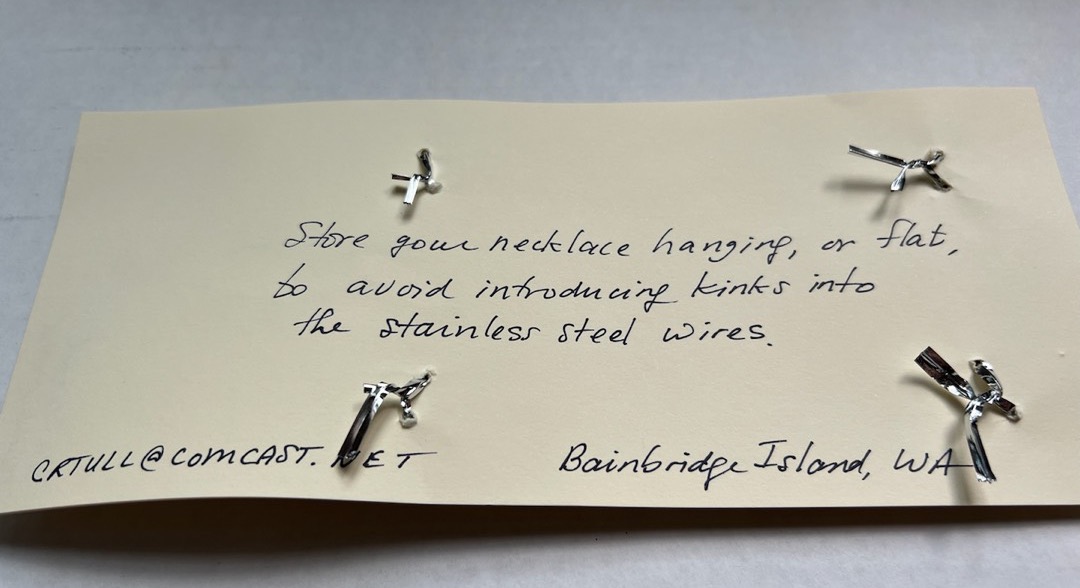 Store your necklace hanging, or flat,
to avoid introducing kinks into
the stainless steel wires.
CRTULL@COMCAST.NET
Bainbridge Island, WA